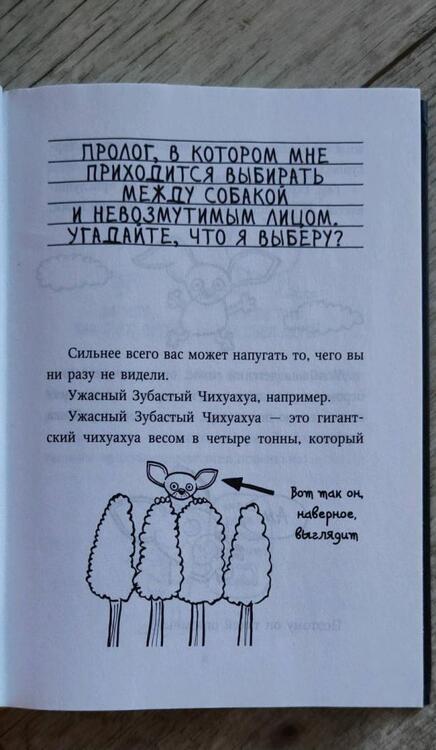 ПРОЛОГ, В КОТОРОМ МНЕ
ПРИХОДИТСЯ ВЫБИРАТЬ
МЕЖДУ СОБАКОЙ
И НЕВОЗМУТИМЫМ ЛИЦОМ.
УГАДАЙТЕ, ЧТО Я ВЫБЕРУ?
Сильнее всего вас может напугать то, чего вы
ни разу не видели.
Ужасный Зубастый Чихуахуа, например.
Ужасный Зубастый Чихуахуа — это гигант-
ский чихуахуа весом в четыре тонны, который
Вот так он,
наверное,
выглядит